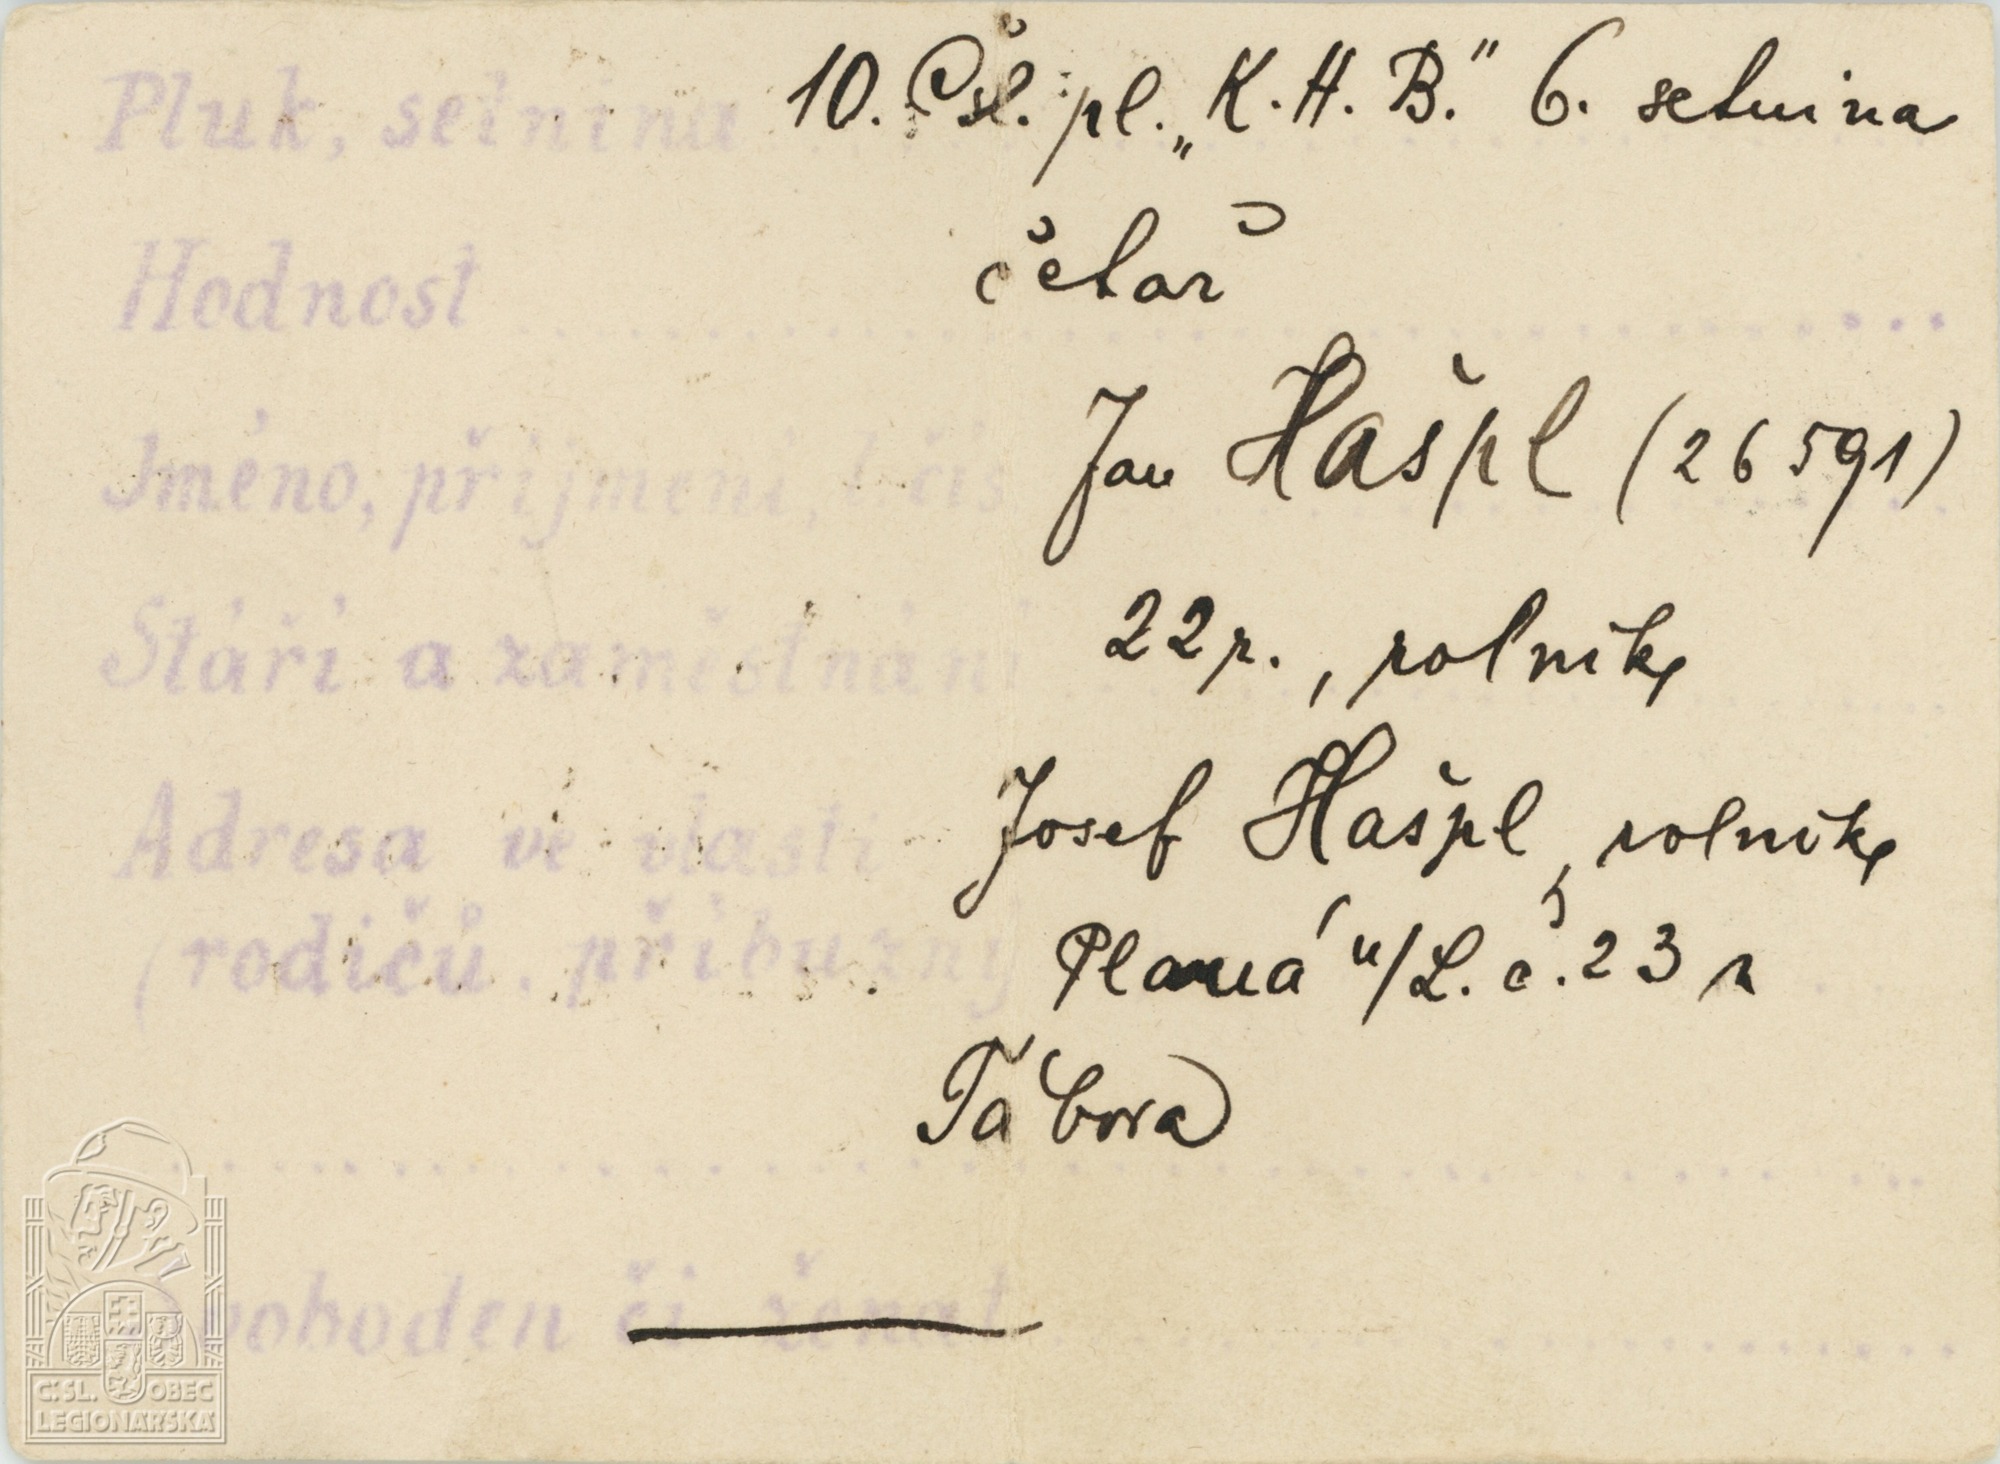 Pluk, setnina 10. Čsl. pl. „K. H. B.“ 6. setnina
Hodnost četař
Jméno, příjmení, čís Jan Hašpl (26591)
Stáří a zaměstnání 22 r., rolník
Adresa ve vlasti Josef Hašpl, rolník
(rodičů, příbuzný Planá n/L. č. 23 u
Tábora
svoboden či ženat
Č.SL. OBEC
LEGIONÁŘSKÁ